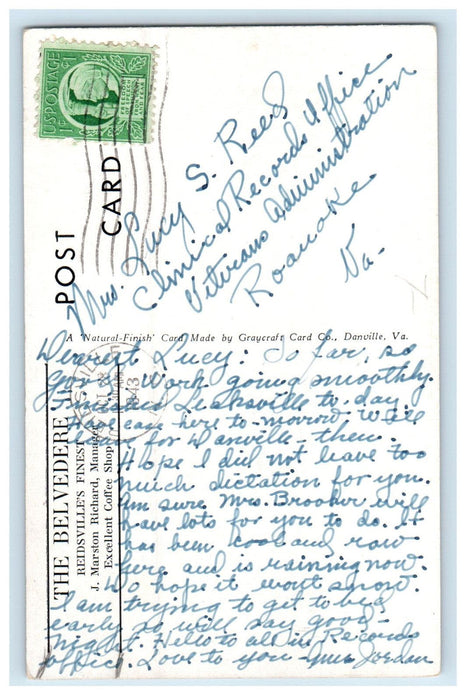 U.S. POSTAGE
1¢
FREEDOM
OF SPEECH
AND RELIGION
FROM WANT
AND FEAR
POST CARD
Mrs. Lucy S. Reed
Clinical Records Office
Veterans Administration
Roanoke
Va.
A 'Natural-Finish' Card Made by Graycraft Card Co., Danville, Va.
THE BELVEDERE
REIDSVILLE'S FINEST
J. Marston Richard, Manager
Excellent Coffee Shop
1943
Dearest Lucy: So far, so
good. Work going smoothly.
Finished Leaksville to day.
Have case here to-morrow. Will
leave for Danville - then.
Hope I did not leave too
much dictation for you.
Am sure Mrs. Brooker will
have lots for you to do. It
has been cool and raw
here and is raining now.
Do hope it wont snow.
I am trying to get to bed
early so will say good-
night. Hello to all in Records
office. Love to you - Mrs Jordan